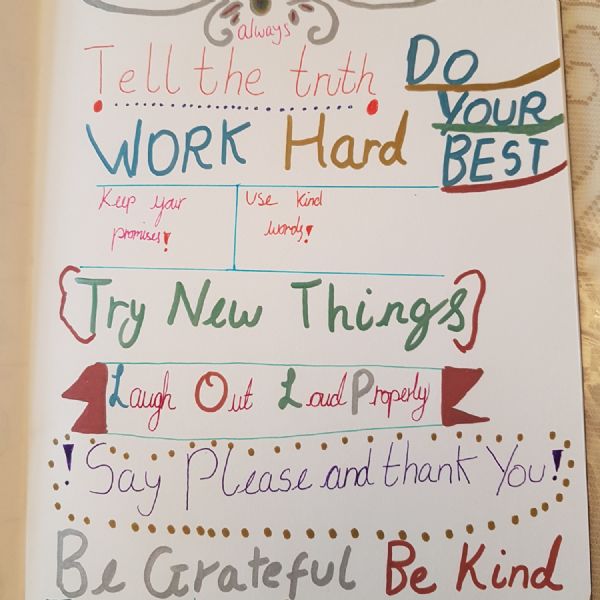 always
Tell the truth
DO
YOUR
BEST
WORK Hard
Keep your
promises!
Use kind
words!
(Try New Things)
Laugh Out Loud Properly
! Say Please and thank You!
Be Grateful Be Kind